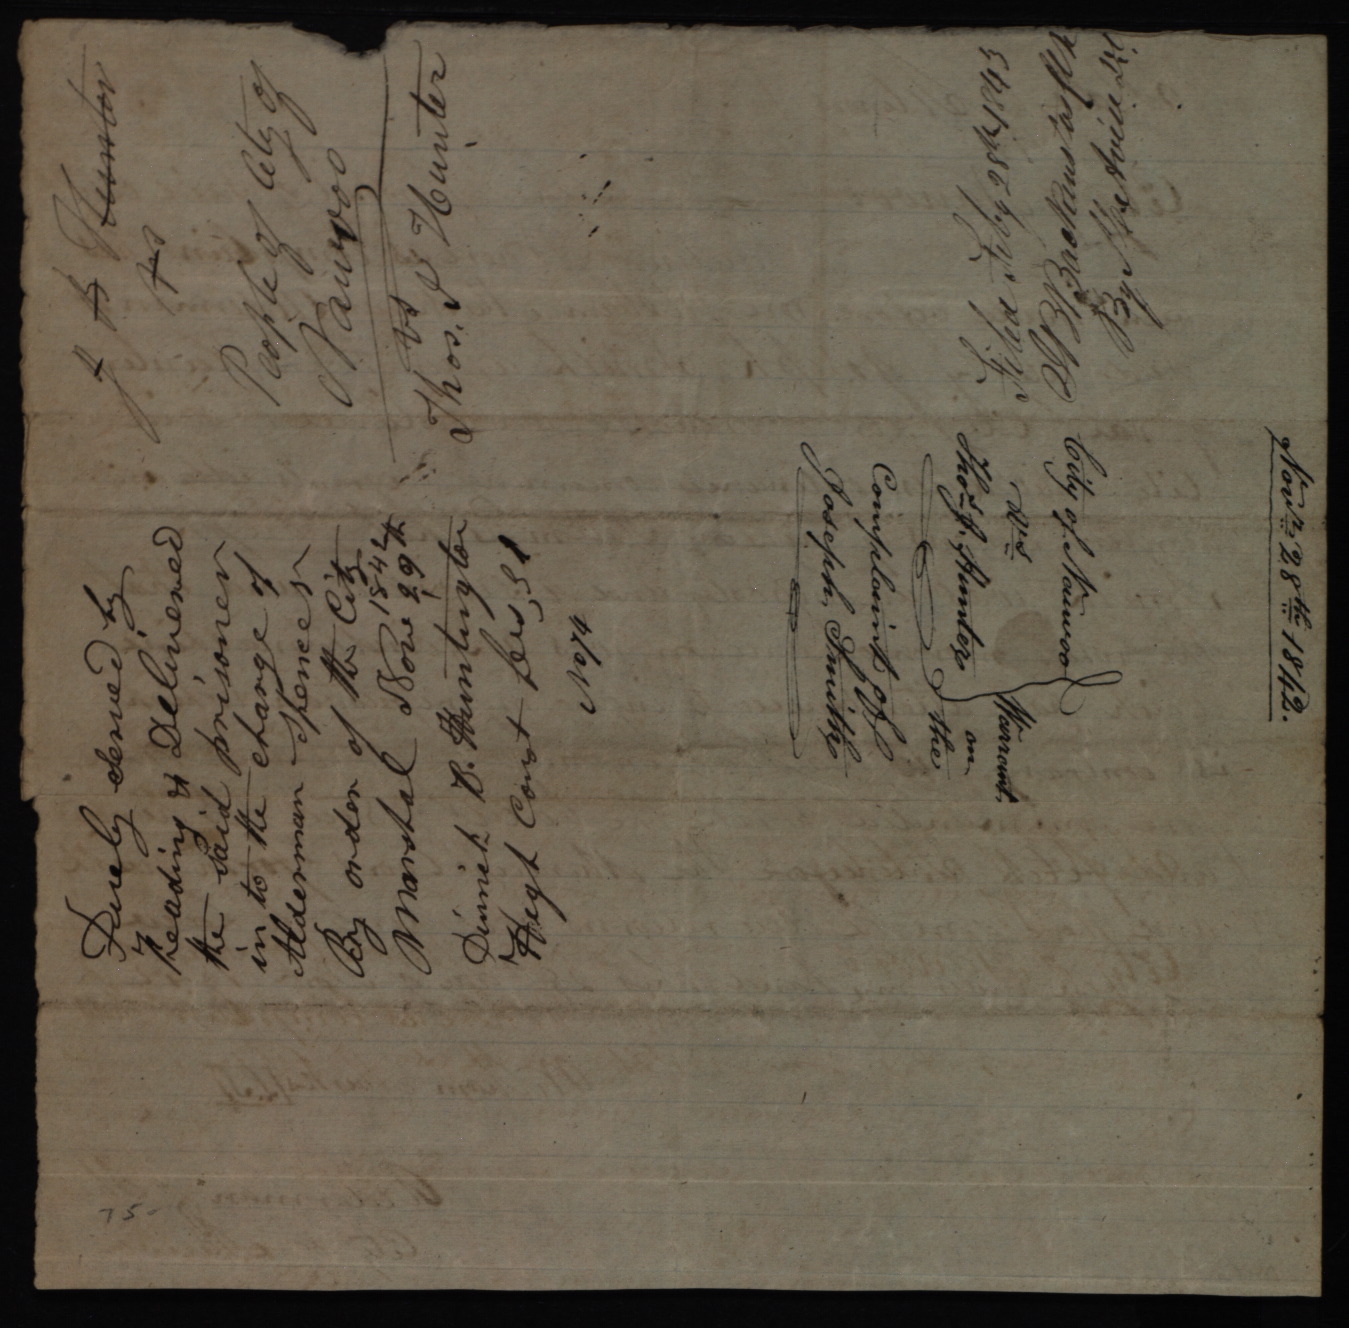 J B Hunter
vs
People of City of
Nauvoo
vs
Thos. J Hunter
Duely served by
Reading & Delivered
the said prisoner
in to the charge of
Alderman Spencer
By order of the City
Marshal Nove 29th 1842
Dimick B. Huntington
Hight Const fees, $1
No 4
Novr. 28th 1842.
City of Nauvoo
vs
Thos. J. Hunter
Warrant,
on
the
Complaint of
Joseph, Smith,
Filed Feby 28th 1843
By
75-